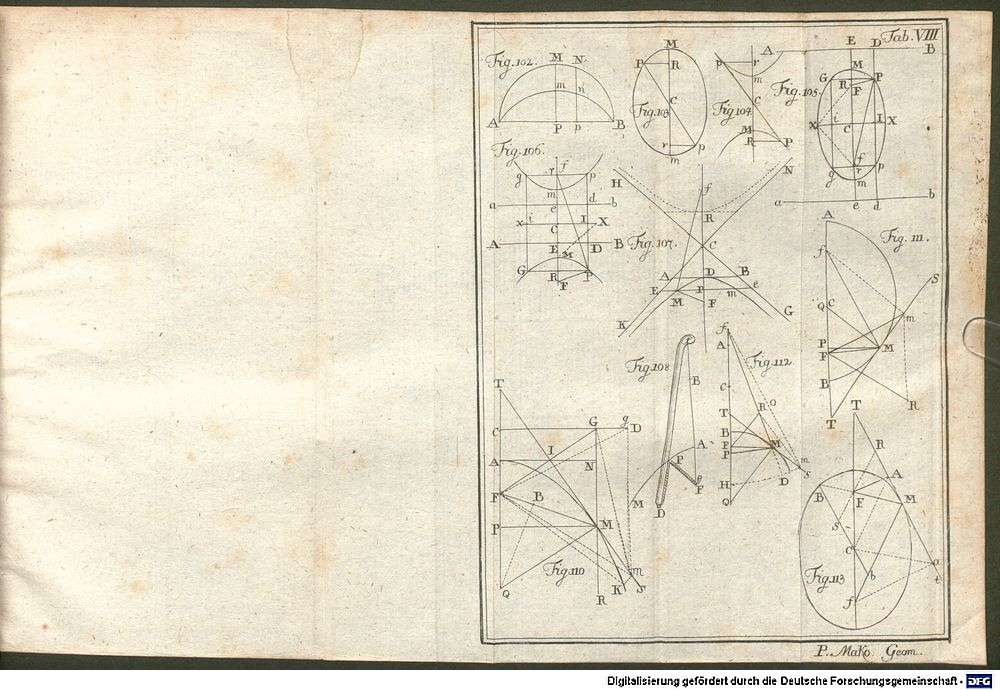 Tab. VIII
Fig. 102.
M N
m n
A P p B
Fig. 103
M
P R
C
r p
m
Fig. 104
A B
p r
m
C
M
R P
Fig. 105.
E D
M
G R P
F
X i C I X
f
g r p
m
a e d b
Fig. 106.
r f
g p
m
a e d b
x i I X
C
A E D B
M
G R P
F
Fig. 107.
H N
f
R
C
A D B
E P m e
M F
K G
Fig. 108
B
A
P
M
F
D
Fig. 110
T
C G g D
A I
N
F B
P M
m
Q R K S
Fig. 111.
A
f
S
Q C
m
P
F M
B
R
T
Fig. 112.
f
A
C
T R O
B
F M
P
m
H D S
Q
Fig. 113
T
R
A
B F M
S
C a
b t
f
P. Mako Geom.
Digitalisierung gefördert durch die Deutsche Forschungsgemeinschaft - DFG